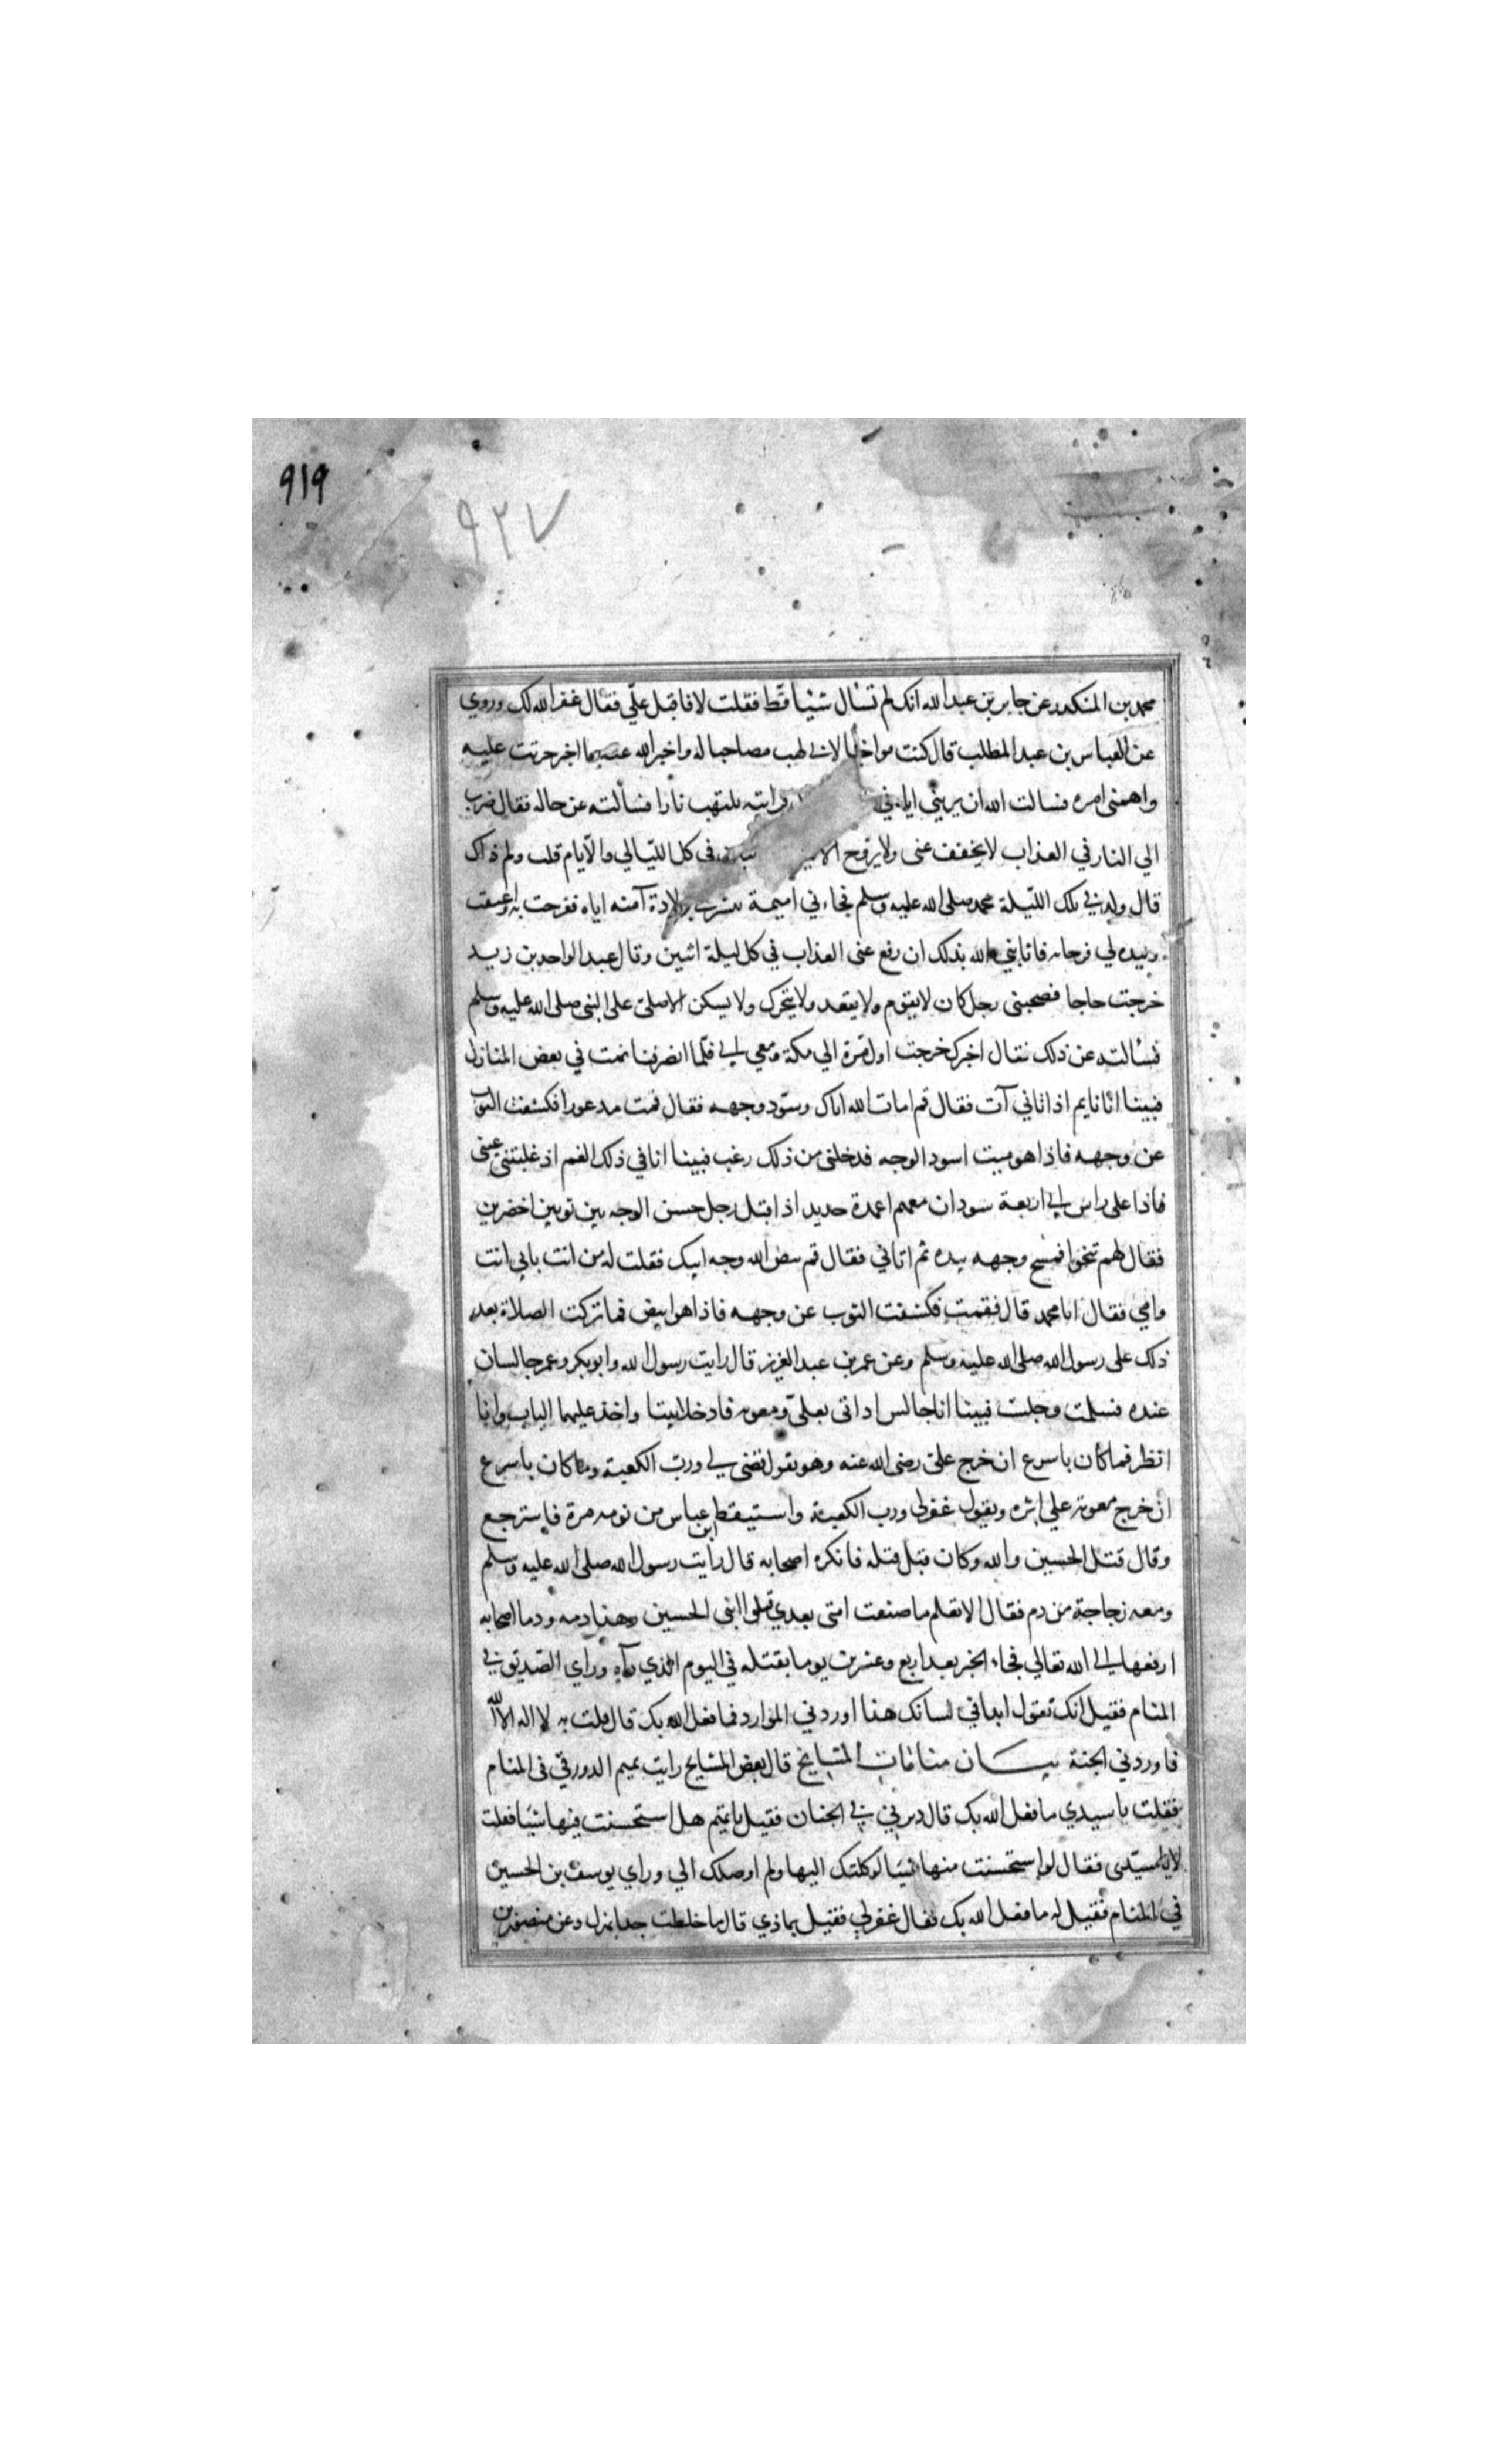 ٩١٩
٩٢٧
محمد بن المنكدر عن جابر بن عبد الله انك لم تسأل شيئا قط فقلت لا فاقبل علي فقال غفر الله لك وروي
عن العباس بن عبد المطلب قال كنت مواخيا لابي لهب مصاحبا له واخبر الله عنه بما اخبر حزنت عليه
واهمني امره فسالت الله ان يريني اياه في فرايته يلتهب نارا فسألته عن حاله فقال صرت
الي النار في العذاب لا يخفف عني ولا يروح الا في كل الليالي والايام قلت ولم ذاك
قال ولد في تلك الليلة محمد صلى الله عليه وسلم فجاءني اميمة تبشرني بولادة آمنه اياه ففرحت به واعتقت
وليده لي فرحا به فاثابني الله بذلك ان رفع عني العذاب في كل ليلة اثنين وقال عبد الواحد بن زيد
خرجت حاجا فصحبني رجل كان لا يقوم ولا يقعد ولا يتحرك ولا يسكن الا صلى على النبي صلى الله عليه وسلم
فسألته عن ذلك فقال اخبرك خرجت اول مرة الي مكة ومعي ابي فلما انصرفنا نمت في بعض المنازل
فبينا انا نايم اذ اتاني آت فقال قم امات الله اباك وسود وجهه فقال فقمت مدعورا فكشفت الثوب
عن وجهه فاذا هو ميت اسود الوجه فدخلني من ذلك رعب فبينا انا في ذلك الغم اذ غلبتني عيني
فاذا على راس ابي اربعة سودان معهم اعمدة حديد اذ اقبل رجل حسن الوجه بين ثوبين اخضرين
فقال لهم تنحوا فمسح وجهه بيده ثم اتاني فقال قم بيض الله وجه ابيك فقلت له من انت بابي انت
وامي فقال انا محمد قال فقمت فكشفت الثوب عن وجهه فاذا هو ابيض فما تركت الصلاة بعد
ذلك على رسول الله صلى الله عليه وسلم وعن عمر بن عبد العزيز قال رايت رسول الله وابو بكر وعمر جالسان
عنده فسلمت وجلست فبينا انا جالس اذ اتى بعلي ومعوية فادخلا بيتا واخذ عليهما الباب وانا
انظر فما كان باسرع ان خرج علي رضى الله عنه وهو يقول قضى لي ورب الكعبة وما كان باسرع
ان خرج معوية علي اثره ويقول غفر لي ورب الكعبة واستيقظ ابن عباس من نومه مرة فاسترجع
وقال قتل الحسين والله وكان قبل قتله فانكره اصحابه قال رايت رسول الله صلى الله عليه وسلم
ومعه زجاجة من دم فقال الا تعلم ما صنعت امتى بعدي قتلوا ابني الحسين وهذا دمه ودم اصحابه
ارفعها الى الله تعالي فجاء الخبر بعد اربع وعشرين يوما بقتله في اليوم الذي رآه وراي الصديق في
المنام فقيل انك تقول ابدا في لسانك هذا اوردني الموارد فما فعل الله بك قال قلت به لا اله الا الله
فاوردني الجنة بيـــان منامات المشايخ قال بعض المشايخ رايت متيم الدورقي في المنام
فقلت يا سيدي ما فعل الله بك قال دير بي في الجنان فقيل يا متيم هل استحسنت فيها شيئا فقلت
لا يا سيدى فقال لو استحسنت منها شيئا لوكلتك اليها ولم اوصلك الي وراي يوسف بن الحسين
في المنام فقيل له ما فعل الله بك فقال غفر لي فقيل بماذي قال ما خلطت جدا بهزل وعن منصور بن